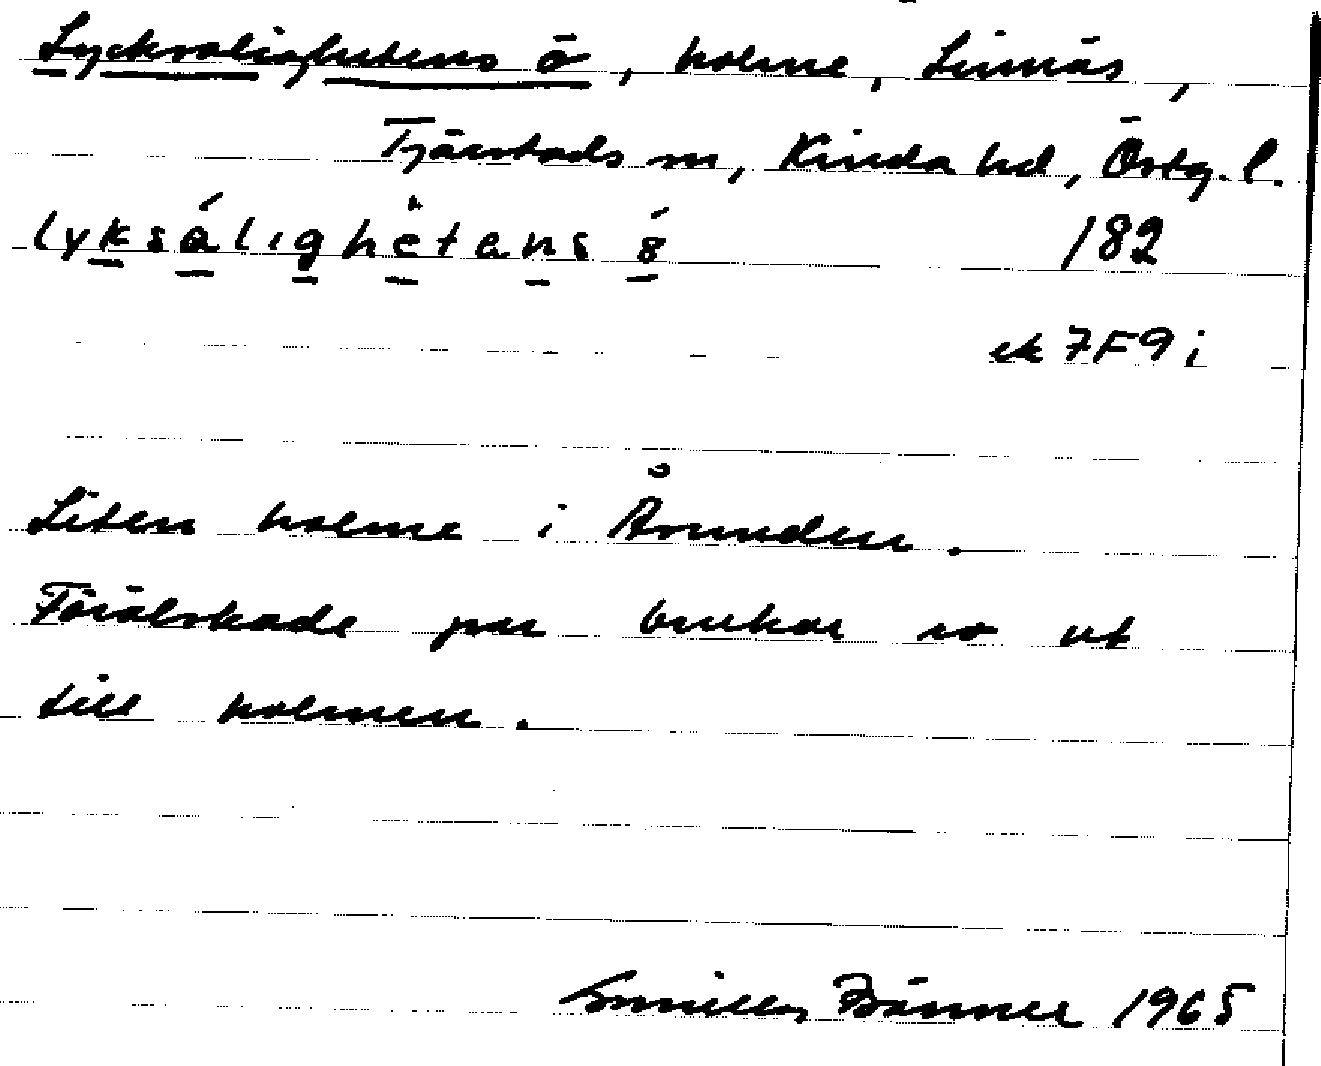 Lycksalighetens ö, holme, Linnäs,
Tjärstads sn, Kinda hd, Östg. l.
lyksálighétens 8́ 182
ek 7F9i
Liten holme i Åsunden.
Förälskade par brukar ro ut
till holmen.
Gunilla 1965